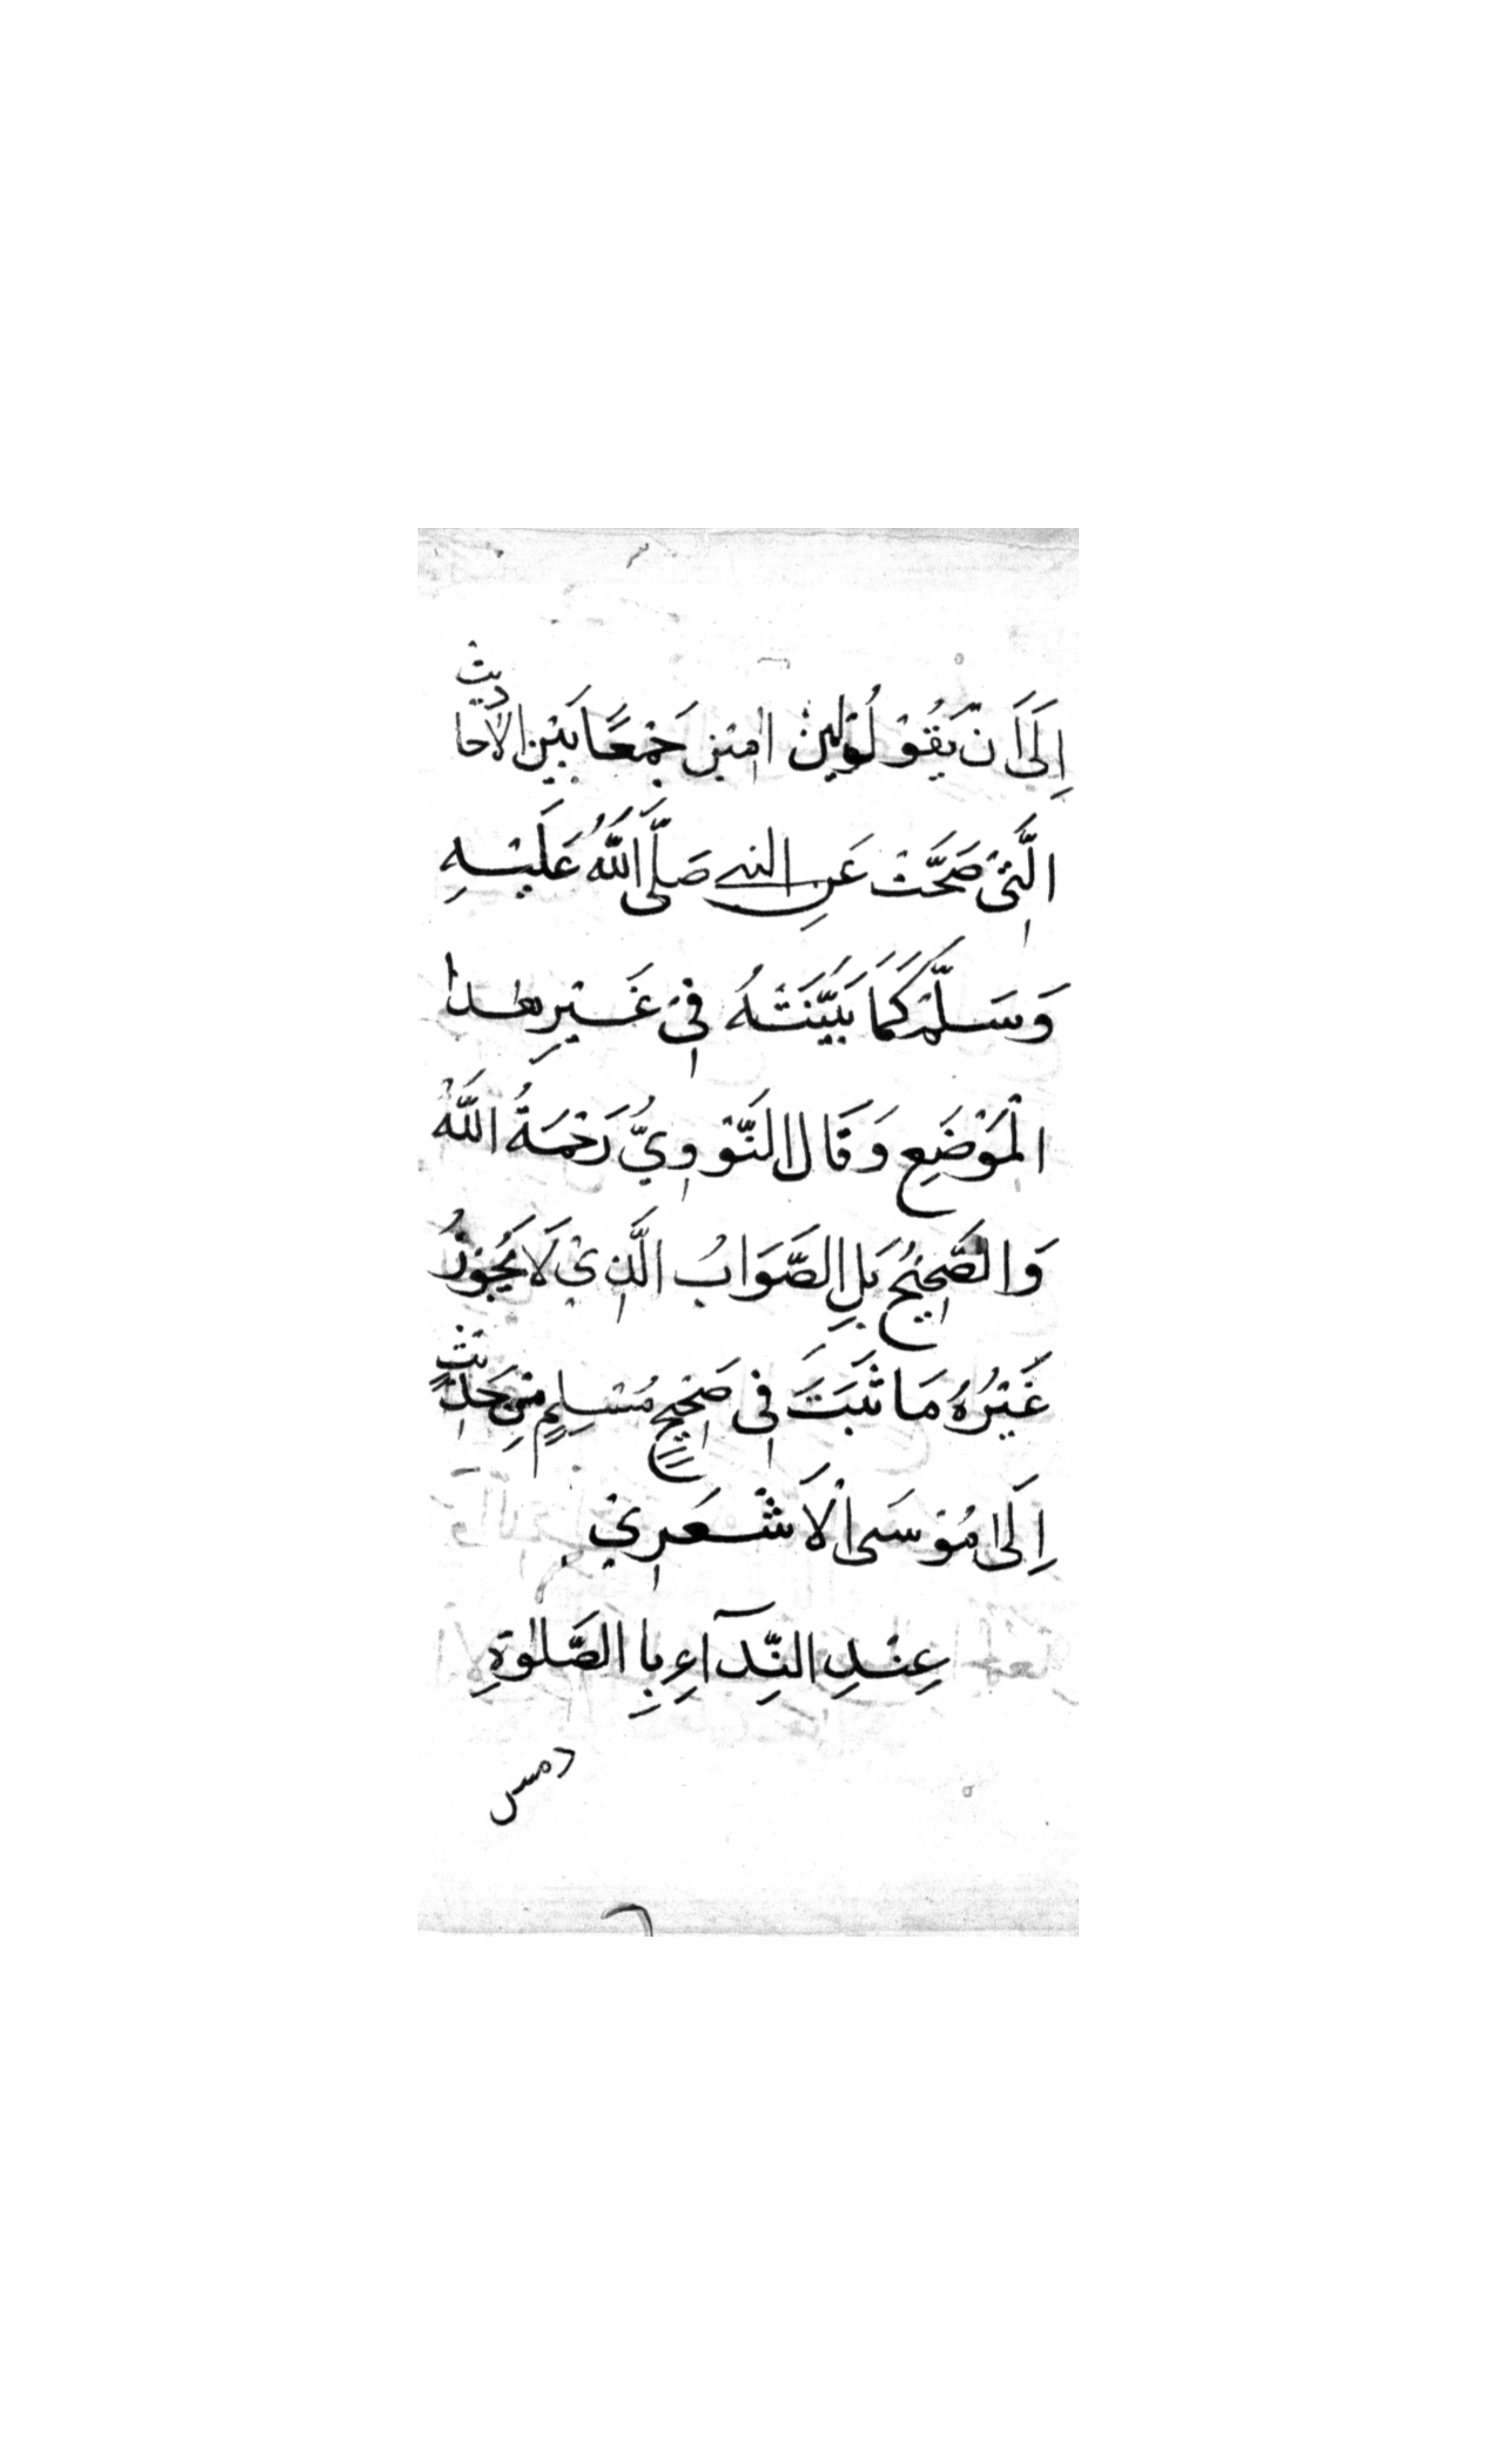 اِلَىَ اَنْ يَقُوْلُوْا لِيْنَ اٰمِيْنَ جَمْعًا بَيْنَ الْاَحَادِيْثِ
الَّتِيْ صَحَّتْ عَنِ النبي صَلَّى اللّٰهُ عَلَيْهِ
وَسَلَّمْ كَمَا بَيَّنْتُهُ فِيْ غَيْرِ هٰذَا
الْمَوْضِعِ وَقَالَ النَّوَوِيُّ رَحْمَةُ اللّٰهُ
وَالصَّحِيْحُ بَلِ الصَّوَابُ الَّذِيْ لَا يَجُوْزُ
غَيْرُهُ مَا ثَبَتَ فِيْ صَحِيْحٍ مُسْلِمٍ مِنْ حَدِيْثٍ
اِلَى مُوْسَى الْاَشْعَرِيْ
عِنْدِ النِّدَآءِ بِا الصَّلٰوةِ